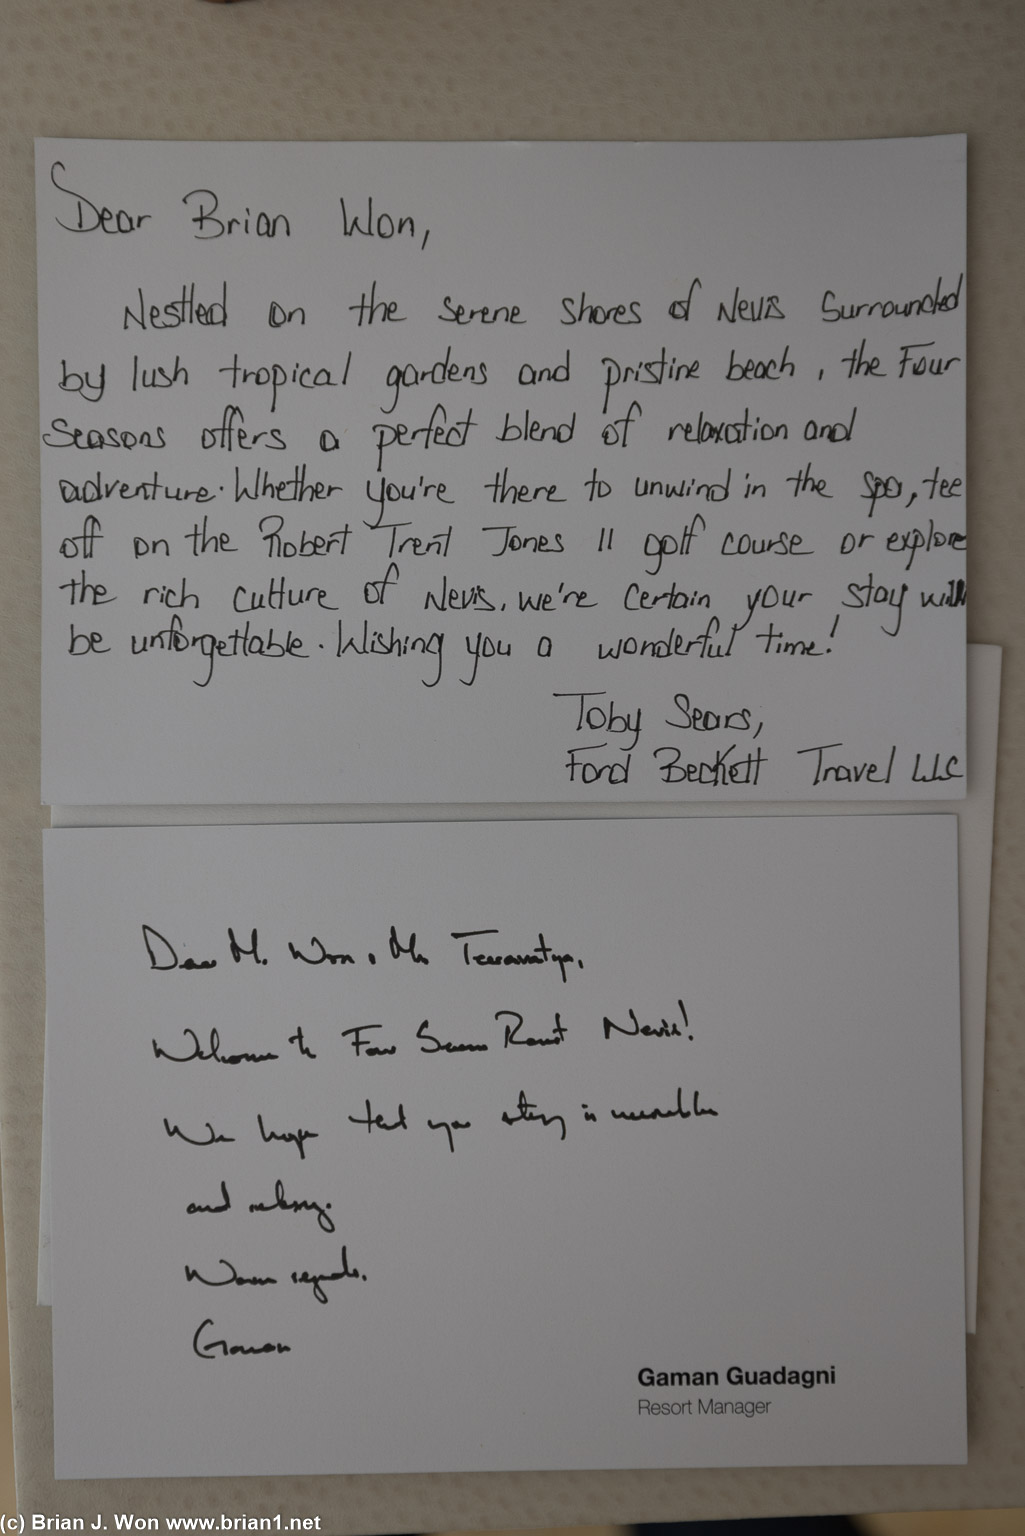 Dear Brian Won,
Nestled on the serene shores of Nevis surrounded
by lush tropical gardens and pristine beach, the Four
Seasons offers a perfect blend of relaxation and
adventure. Whether you're there to unwind in the spa, tee
off on the Robert Trent Jones II golf course or explore
the rich culture of Nevis, we're certain your stay will
be unforgettable. Wishing you a wonderful time!
Toby Sears,
Ford Beckett Travel LLC
Dear Mr. Won,
Welcome to Four Seasons Resort Nevis!
We hope that your stay is memorable
and relaxing.
Warm regards,
Gaman
Gaman Guadagni
Resort Manager
(c) Brian J. Won www.brian1.net